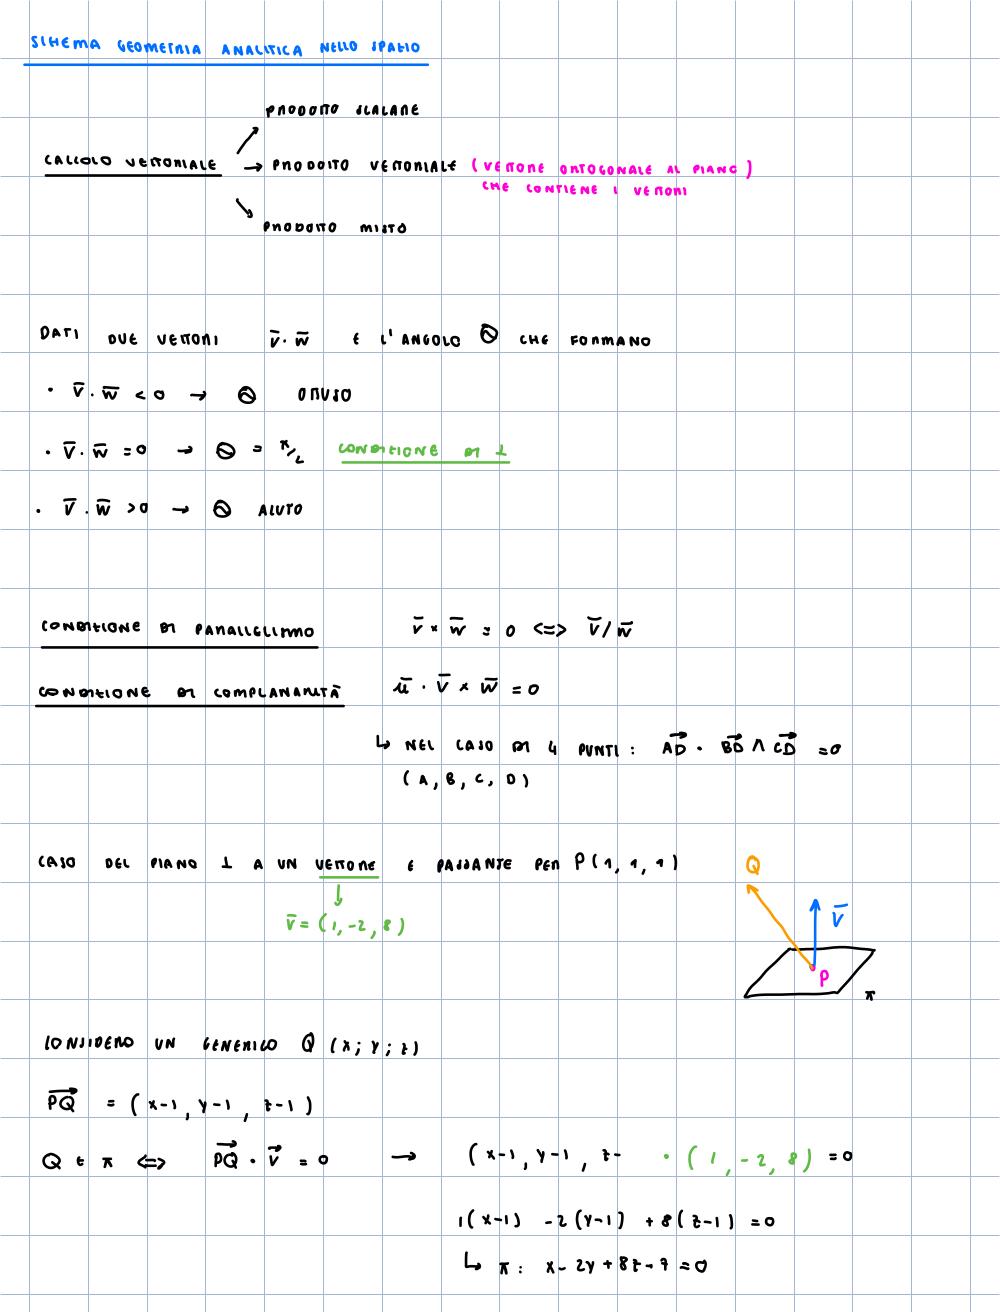 SCHEMA GEOMETRIA ANALITICA NELLO SPAZIO
PRODOTTO SCALARE
CALCOLO VETTORIALE → PRODOTTO VETTORIALE (VETTORE ORTOGONALE AL PIANO)
CHE CONTIENE I VETTORI
PRODOTTO MISTO
DATI DUE VETTORI v̅·w̅ E L'ANGOLO Θ CHE FORMANO
• v̅·w̅ <0 → Θ OTTUSO
• v̅·w̅ =0 → Θ = π/2 CONDIZIONE DI ⊥
• v̅·w̅ >0 → Θ ACUTO
CONDIZIONE DI PARALLELISMO v̅ × w̅ = 0 <=> v̅/w̅
CONDIZIONE DI COMPLANARITÀ u̅ · v̅ × w̅ =0
↳ NEL CASO DI 4 PUNTI: AD⃗ · BD⃗ ∧ CD⃗ =0
(A, B, C, D)
CASO DEL PIANO ⊥ A UN VETTORE E PASSANTE PER P(1,1,1)
v̅=(1,-2,8)
Q
v̅
P
π
CONSIDERO UN GENERICO Q (x; y; z)
PQ⃗ = (x-1, y-1, z-1)
Q ∈ π <=> PQ⃗ · v⃗ = 0 → (x-1, y-1, z- · (1,-2,8) =0
1(x-1) -2(y-1) +8(z-1) =0
↳ π: x-2y+8z-7=0